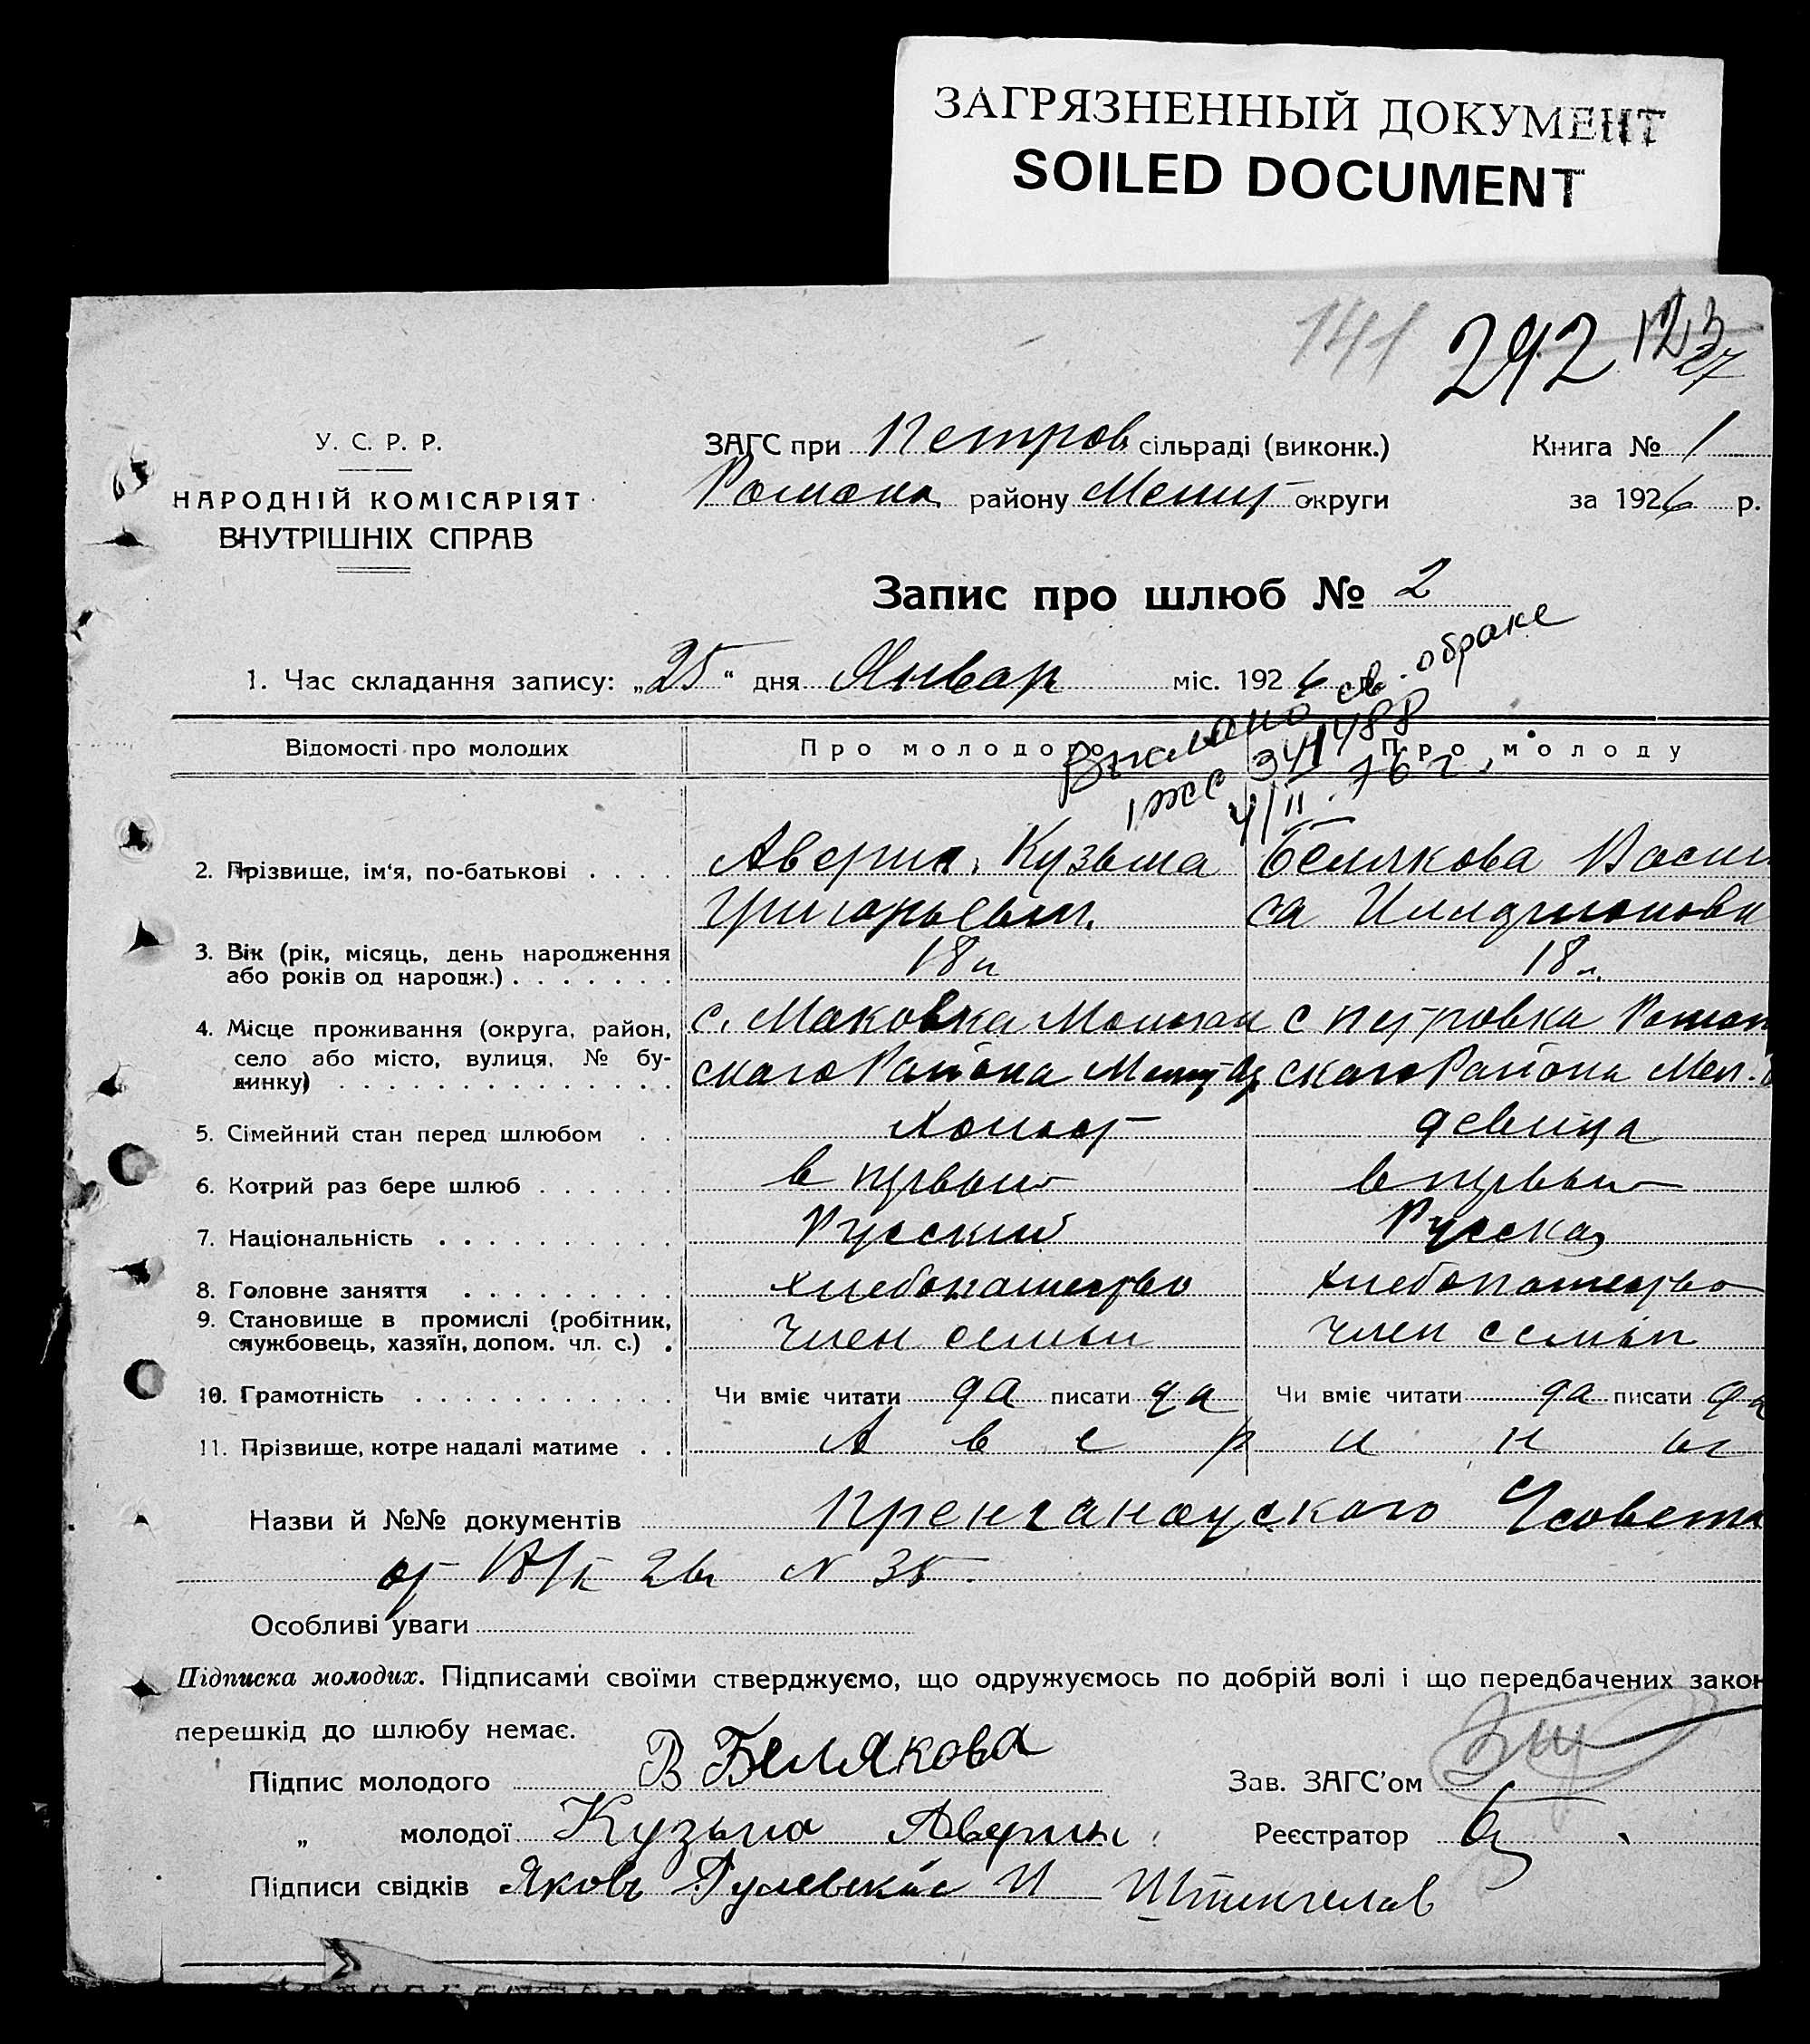 ЗАГРЯЗНЕННЫЙ ДОКУМЕНТ
SOILED DOCUMENT
141 292 123
27
У. С. Р. Р.
НАРОДНІЙ КОМІСАРІЯТ
ВНУТРІШНІХ СПРАВ
ЗАГС при Петров сільраді (виконк.) Книга № 1
району округи за 1926 р.
Запис про шлюб № 2
1. Час складання запису: „25" дня Январ міс. 1926
св. о браке
341488
4/II 76 г.
Відомості про молодих Про молодого Про молоду
2. Прізвище, ім'я, по-батькові . . . . Аверин Кузьма Белякова Васи
са Илларионовн
3. Вік (рік, місяць, день народження
або років од народж.) . . . . . . . 18 л 18 л.
4. Місце проживання (округа, район, с. Маковка с Петровка Роман
село або місто, вулиця, № бу-
динку) . . . . . . . . . . . . . . ского Района ского Района Мел.
5. Сімейний стан перед шлюбом . . Холост девица
6. Котрий раз бере шлюб . . . . . . в первый в первый
7. Національність . . . . . . . . . . Русский Русская
8. Головне заняття . . . . . . . . . хлебопашество хлебопашество
9. Становище в промислі (робітник,
службовець, хазяїн, допом. чл. с.) . член семьи член семьи
10. Грамотність . . . . . . . . . . . Чи вміє читати да писати да Чи вміє читати да писати да
11. Прізвище, котре надалі матиме . . А в е р и н ы
Назви й №№ документів
от N 35.
Особливі уваги
Підписка молодих. Підписами своїми стверджуємо, що одружуємось по добрій волі і що передбачених закон
перешкід до шлюбу немає.
Підпис молодого В Белякова Зав. ЗАГС'ом
„ молодої Кузьма Аверин Реєстратор
Підписи свідків Яковъ